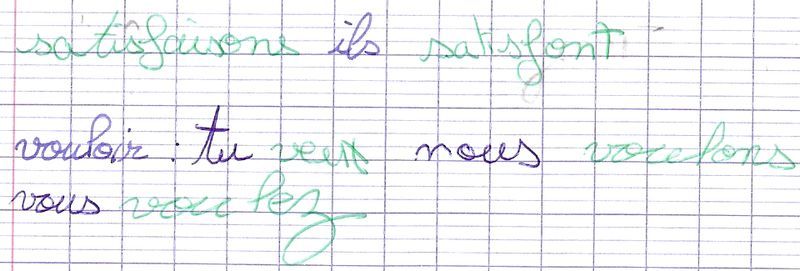 satisfaisons ils satisfont
vouloir : tu veux nous voulons
vous voulez